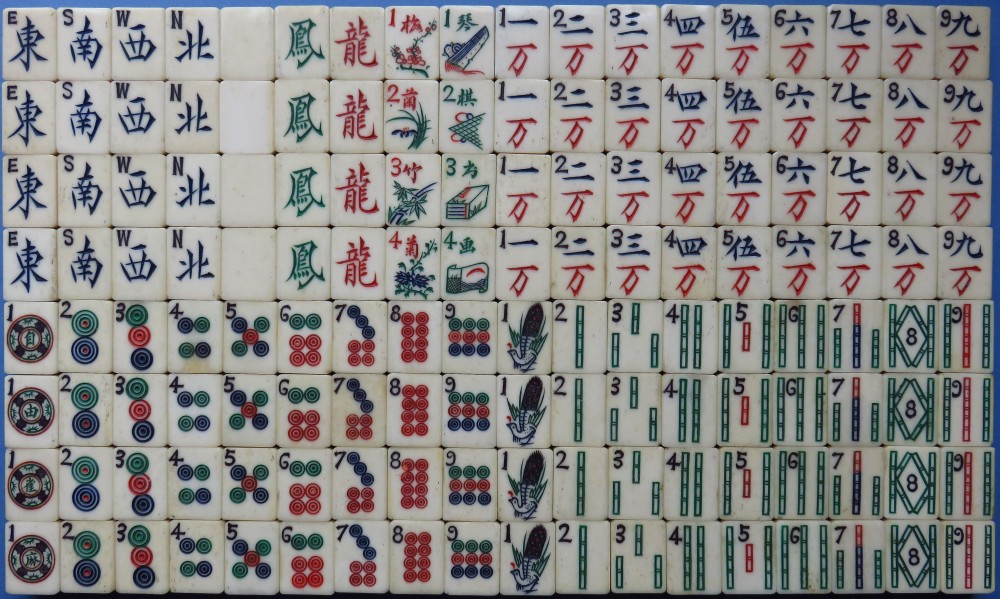 E 東 S 南 W 西 N 北 鳳 龍 1 梅 1 琴 1 一万 2 二万 3 三万 4 四万 5 伍万 6 六万 7 七万 8 八万 9 九万
E 東 S 南 W 西 N 北 鳳 龍 2 蘭 2 棋 1 一万 2 二万 3 三万 4 四万 5 伍万 6 六万 7 七万 8 八万 9 九万
E 東 S 南 W 西 N 北 鳳 龍 3 竹 3 1 一万 2 二万 3 三万 4 四万 5 伍万 6 六万 7 七万 8 八万 9 九万
E 東 S 南 W 西 N 北 鳳 龍 4 菊 4 画 1 一万 2 二万 3 三万 4 四万 5 伍万 6 六万 7 七万 8 八万 9 九万
1 自 2 3 4 5 6 7 8 9 1 2 3 4 5 6 7 8 9
1 由 2 3 4 5 6 7 8 9 1 2 3 4 5 6 7 8 9
1 雀 2 3 4 5 6 7 8 9 1 2 3 4 5 6 7 8 9
1 城 2 3 4 5 6 7 8 9 1 2 3 4 5 6 7 8 9